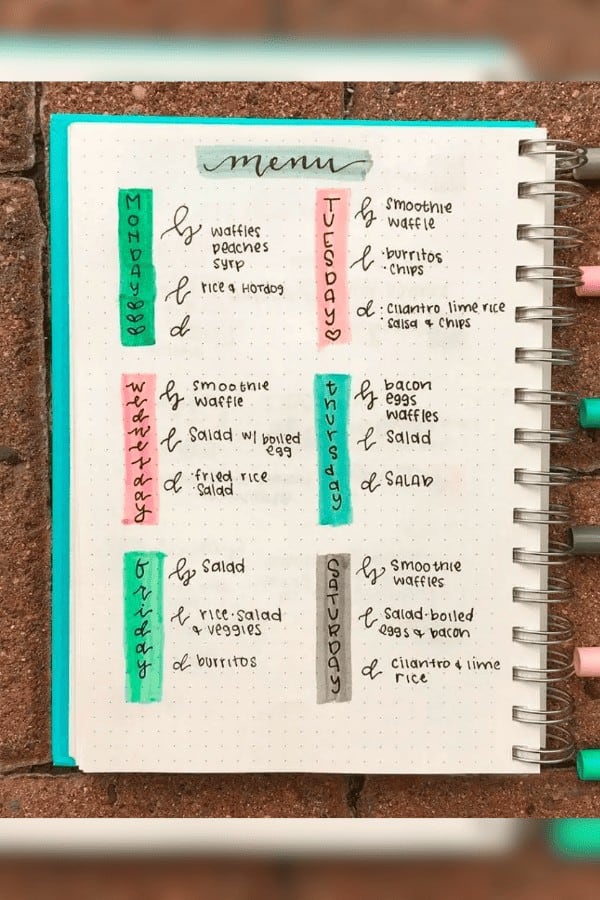 menu
MONDAY
b
waffles
peaches
syrp
l
rice & HOTdOg
d
TUESDAY♡
b
smoothie
waffle
l
·burritos
·chips
d
·cilantro lime rice
·salsa & chips
wednesday
b
smoothie
waffle
l
salad w/ boiled
egg
d
·fried rice
·salad
thursday
b
bacon
eggs
waffles
l
salad
d
SALAD
friday
b
salad
l
rice·salad
& veggies
d
burritos
SATURDAY
b
smoothie
waffles
l
salad·boiled
eggs & bacon
d
cilantro & lime
rice